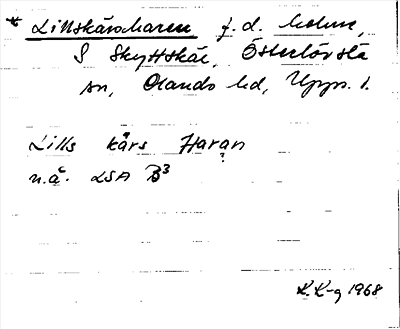 * Lillskärsharen f.d. holme,
S Skyttskär, Österlövsta
sn, Olands hd, Upps. l.
Lills kärs Haran
u.å. LSA B³
K.K-g 1968